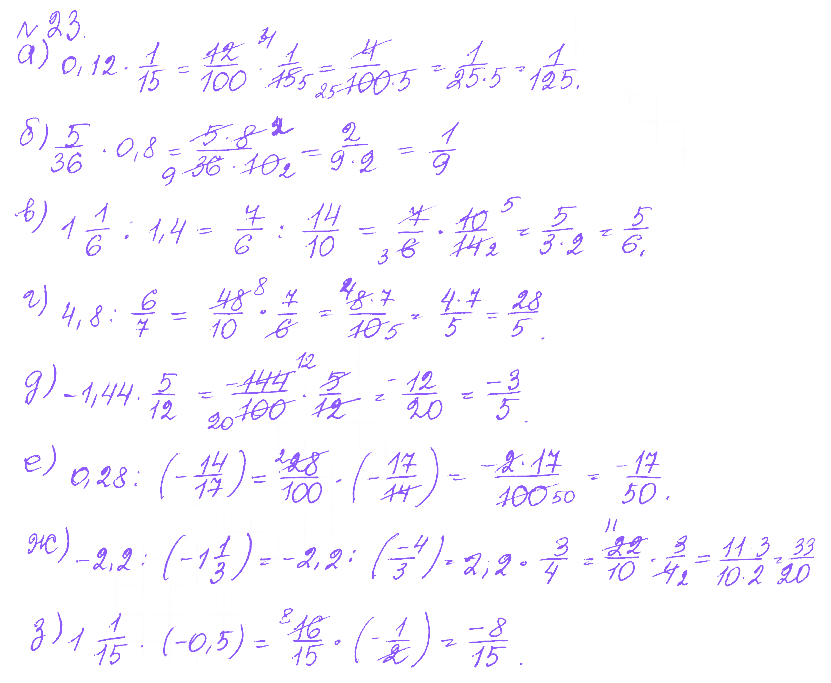 №23.
а) 0,12 · 1/15 = 12/100 · 1/15 = 4/(100·5) = 1/(25·5) = 1/125.
б) 5/36 · 0,8 = (5·8)/(36·10) = 2/(9·2) = 1/9
в) 1 1/6 : 1,4 = 7/6 : 14/10 = 7/6 · 10/14 = 5/(3·2) = 5/6.
г) 4,8 : 6/7 = 48/10 · 7/6 = (8·7)/10 = (4·7)/5 = 28/5.
д) -1,44 · 5/12 = -144/100 · 5/12 = -12/20 = -3/5.
е) 0,28 : (-14/17) = 28/100 · (-17/14) = (-2·17)/100 = -17/50.
ж) -2,2 : (-1 1/3) = -2,2 : (-4/3) = 2,2 · 3/4 = 22/10 · 3/4 = (11 3)/(10·2) = 33/20
з) 1 1/15 · (-0,5) = 16/15 · (-1/2) = -8/15.